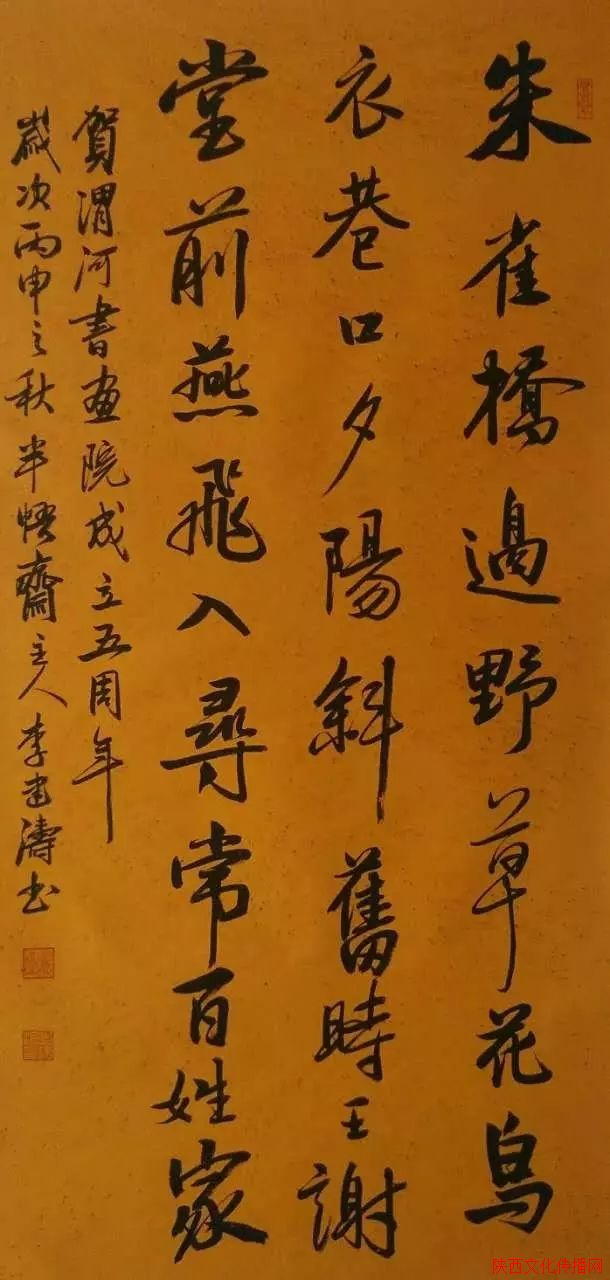 朱雀橋邊野草花烏
衣巷口夕陽斜舊時王謝
堂前燕飛入尋常百姓家
賀渭河書畫院成立五周年
歲次丙申之秋半悟齋主人李建濤书
陕西文化传播网